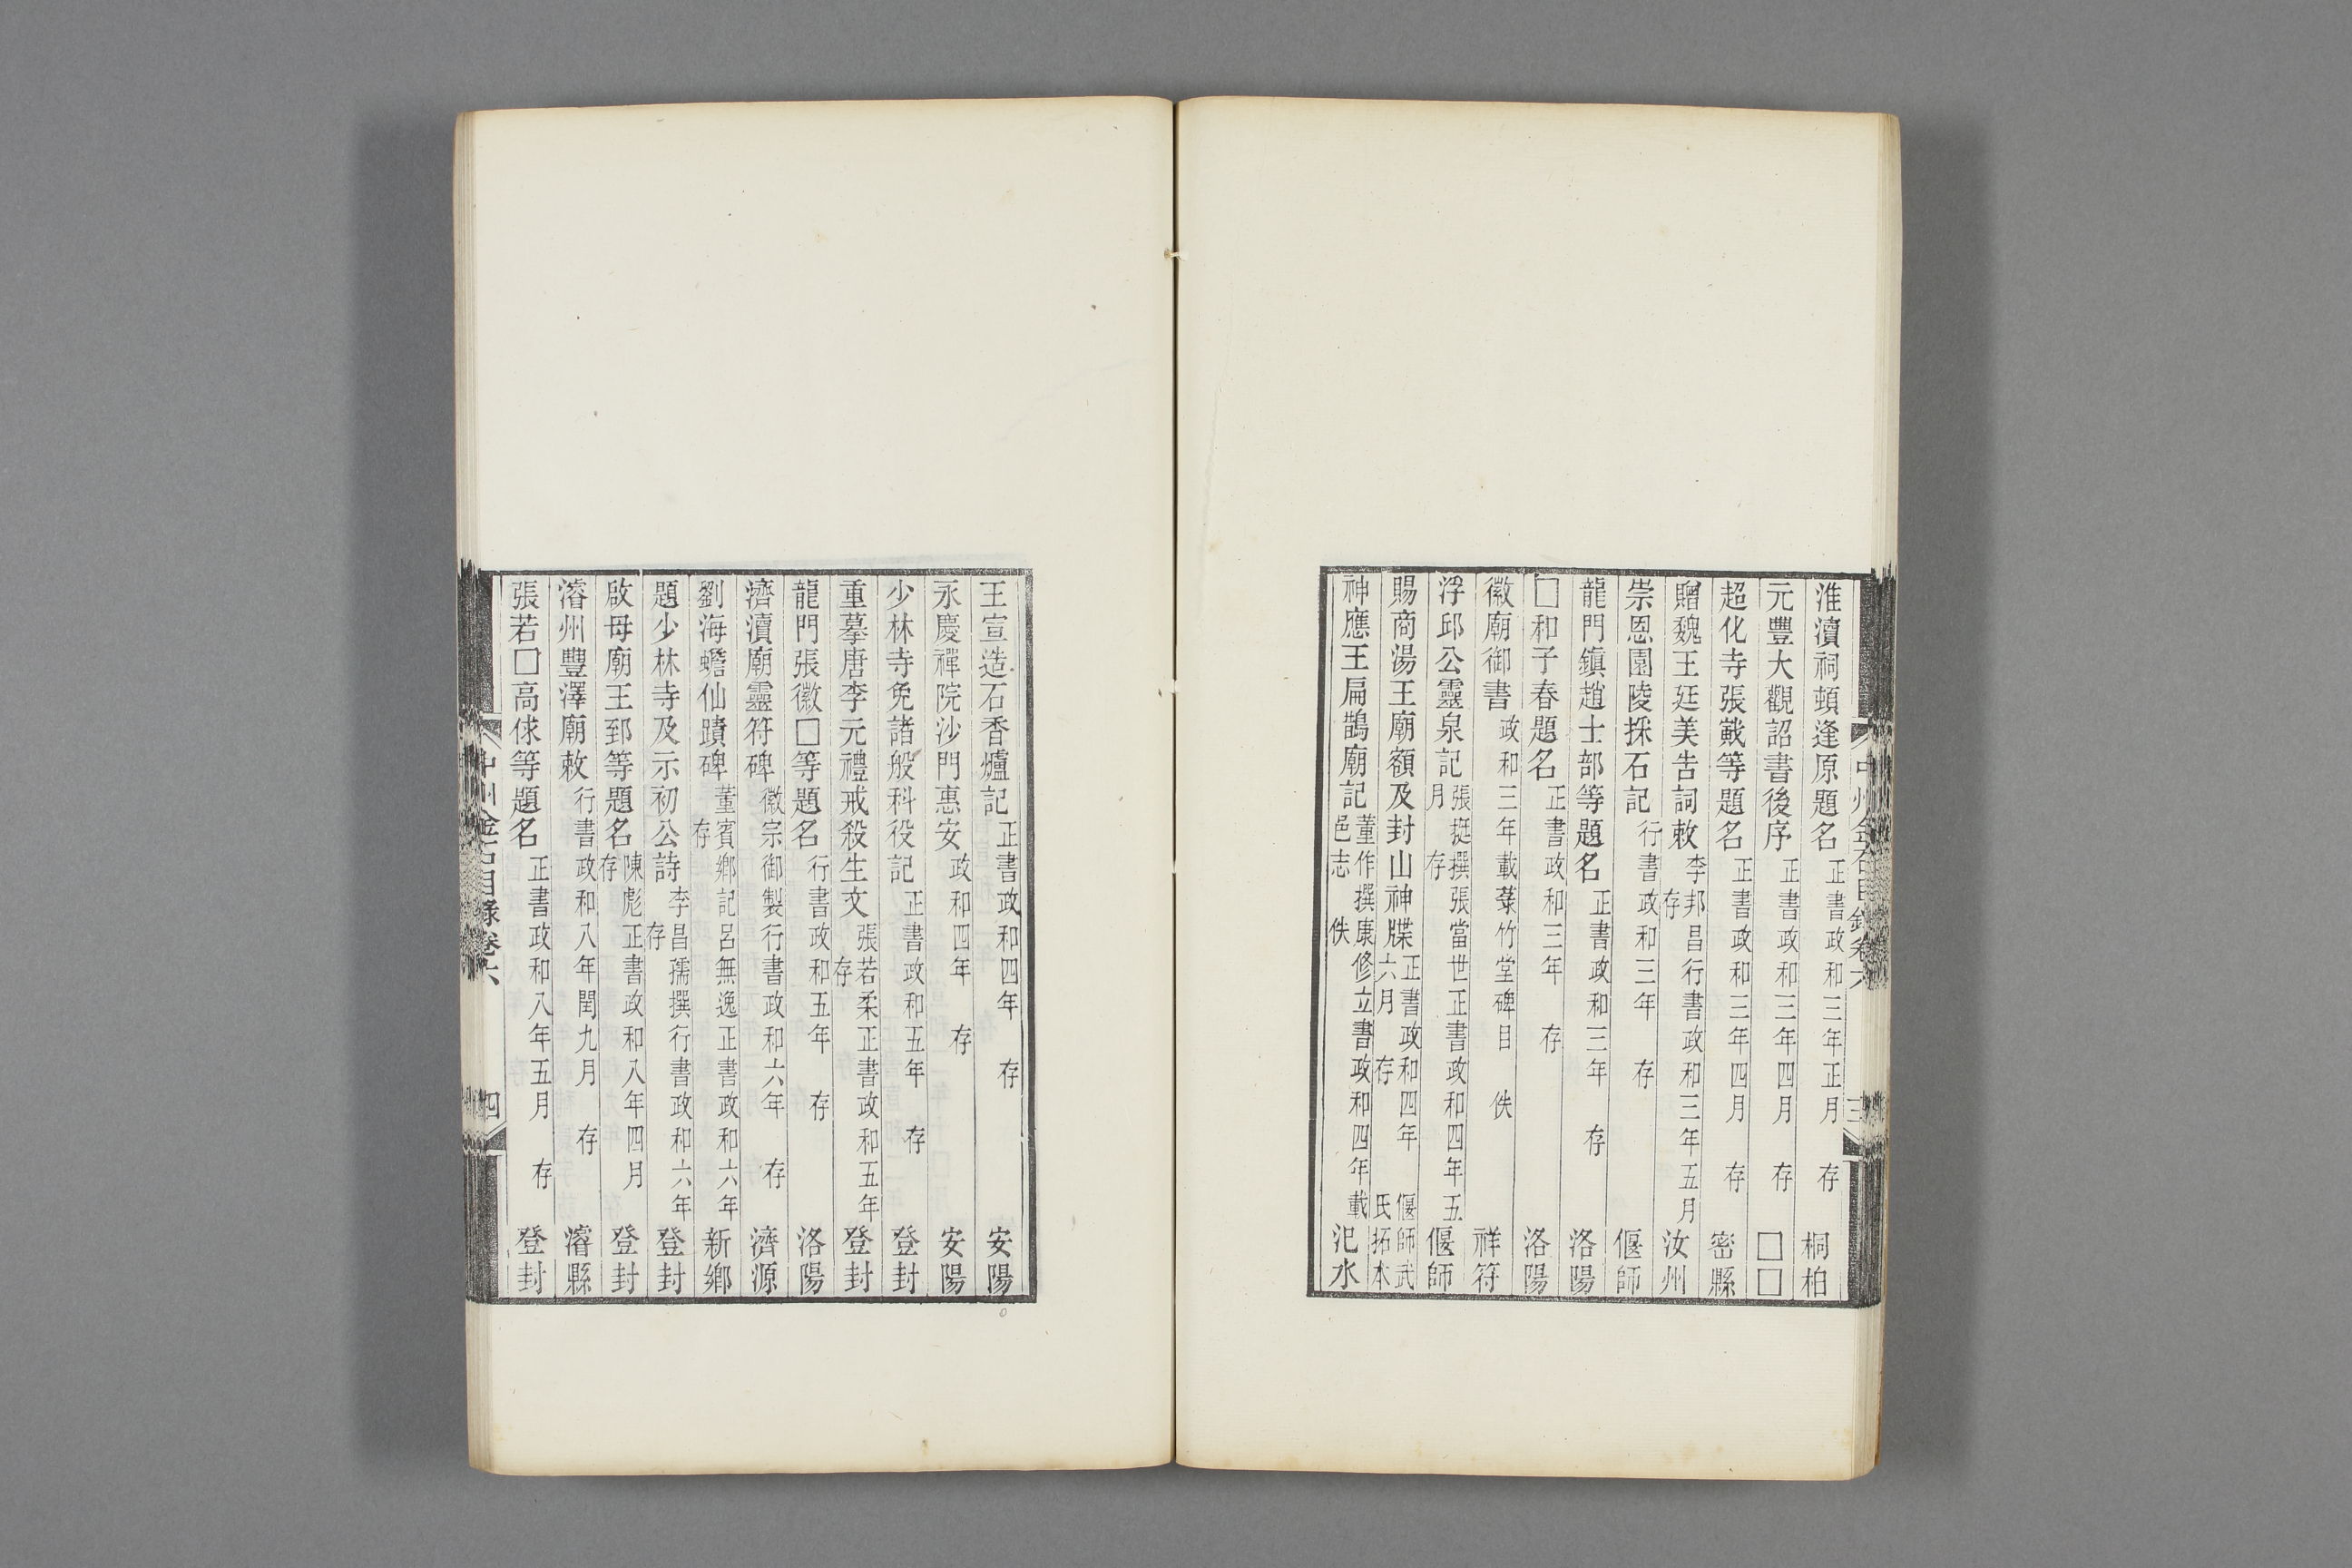 淮瀆祠頓逢原題名 正書政和三年正月 存 桐柏
元豐大觀詔書後序 正書政和三年四月 存 □□
超化寺張戩等題名 正書政和三年四月 存 密縣
贈魏王廷美告詞敕 李邦昌行書政和三年五月 存 汝州
崇恩園陵採石記 行書政和三年 存 偃師
龍門鎮趙士部等題名 正書政和三年 存 洛陽
□和子春題名 正書政和三年 存 洛陽
徽廟御書 政和三年載菉竹堂碑目 佚 祥符
浮邱公靈泉記 張挺撰張當世正書政和四年五月 存 偃師
賜商湯王廟額及封山神牒 正書政和四年六月 存 偃師武氏拓本
神應王扁鵲廟記 董作撰康修立書政和四年載邑志 佚 汜水
中州金石目錄卷六 三
王宣造石香爐記 正書政和四年 存 安陽
永慶禪院沙門惠安 政和四年 存 安陽
少林寺免諸般科役記 正書政和五年 存 登封
重摹唐李元禮戒殺生文 張若柔正書政和五年 存 登封
龍門張徽□等題名 行書政和五年 存 洛陽
濟瀆廟靈符碑 徽宗御製行書政和六年 存 濟源
劉海蟾仙蹟碑 董賓鄉記呂無逸正書政和六年 存 新鄉
題少林寺及示初公詩 李昌孺撰行書政和六年 存 登封
啟母廟王郅等題名 陳彪正書政和八年四月 存 登封
濬州豐澤廟敕 行書政和八年閏九月 存 濬縣
張若□高俅等題名 正書政和八年五月 存 登封
中州金石目錄卷六 四